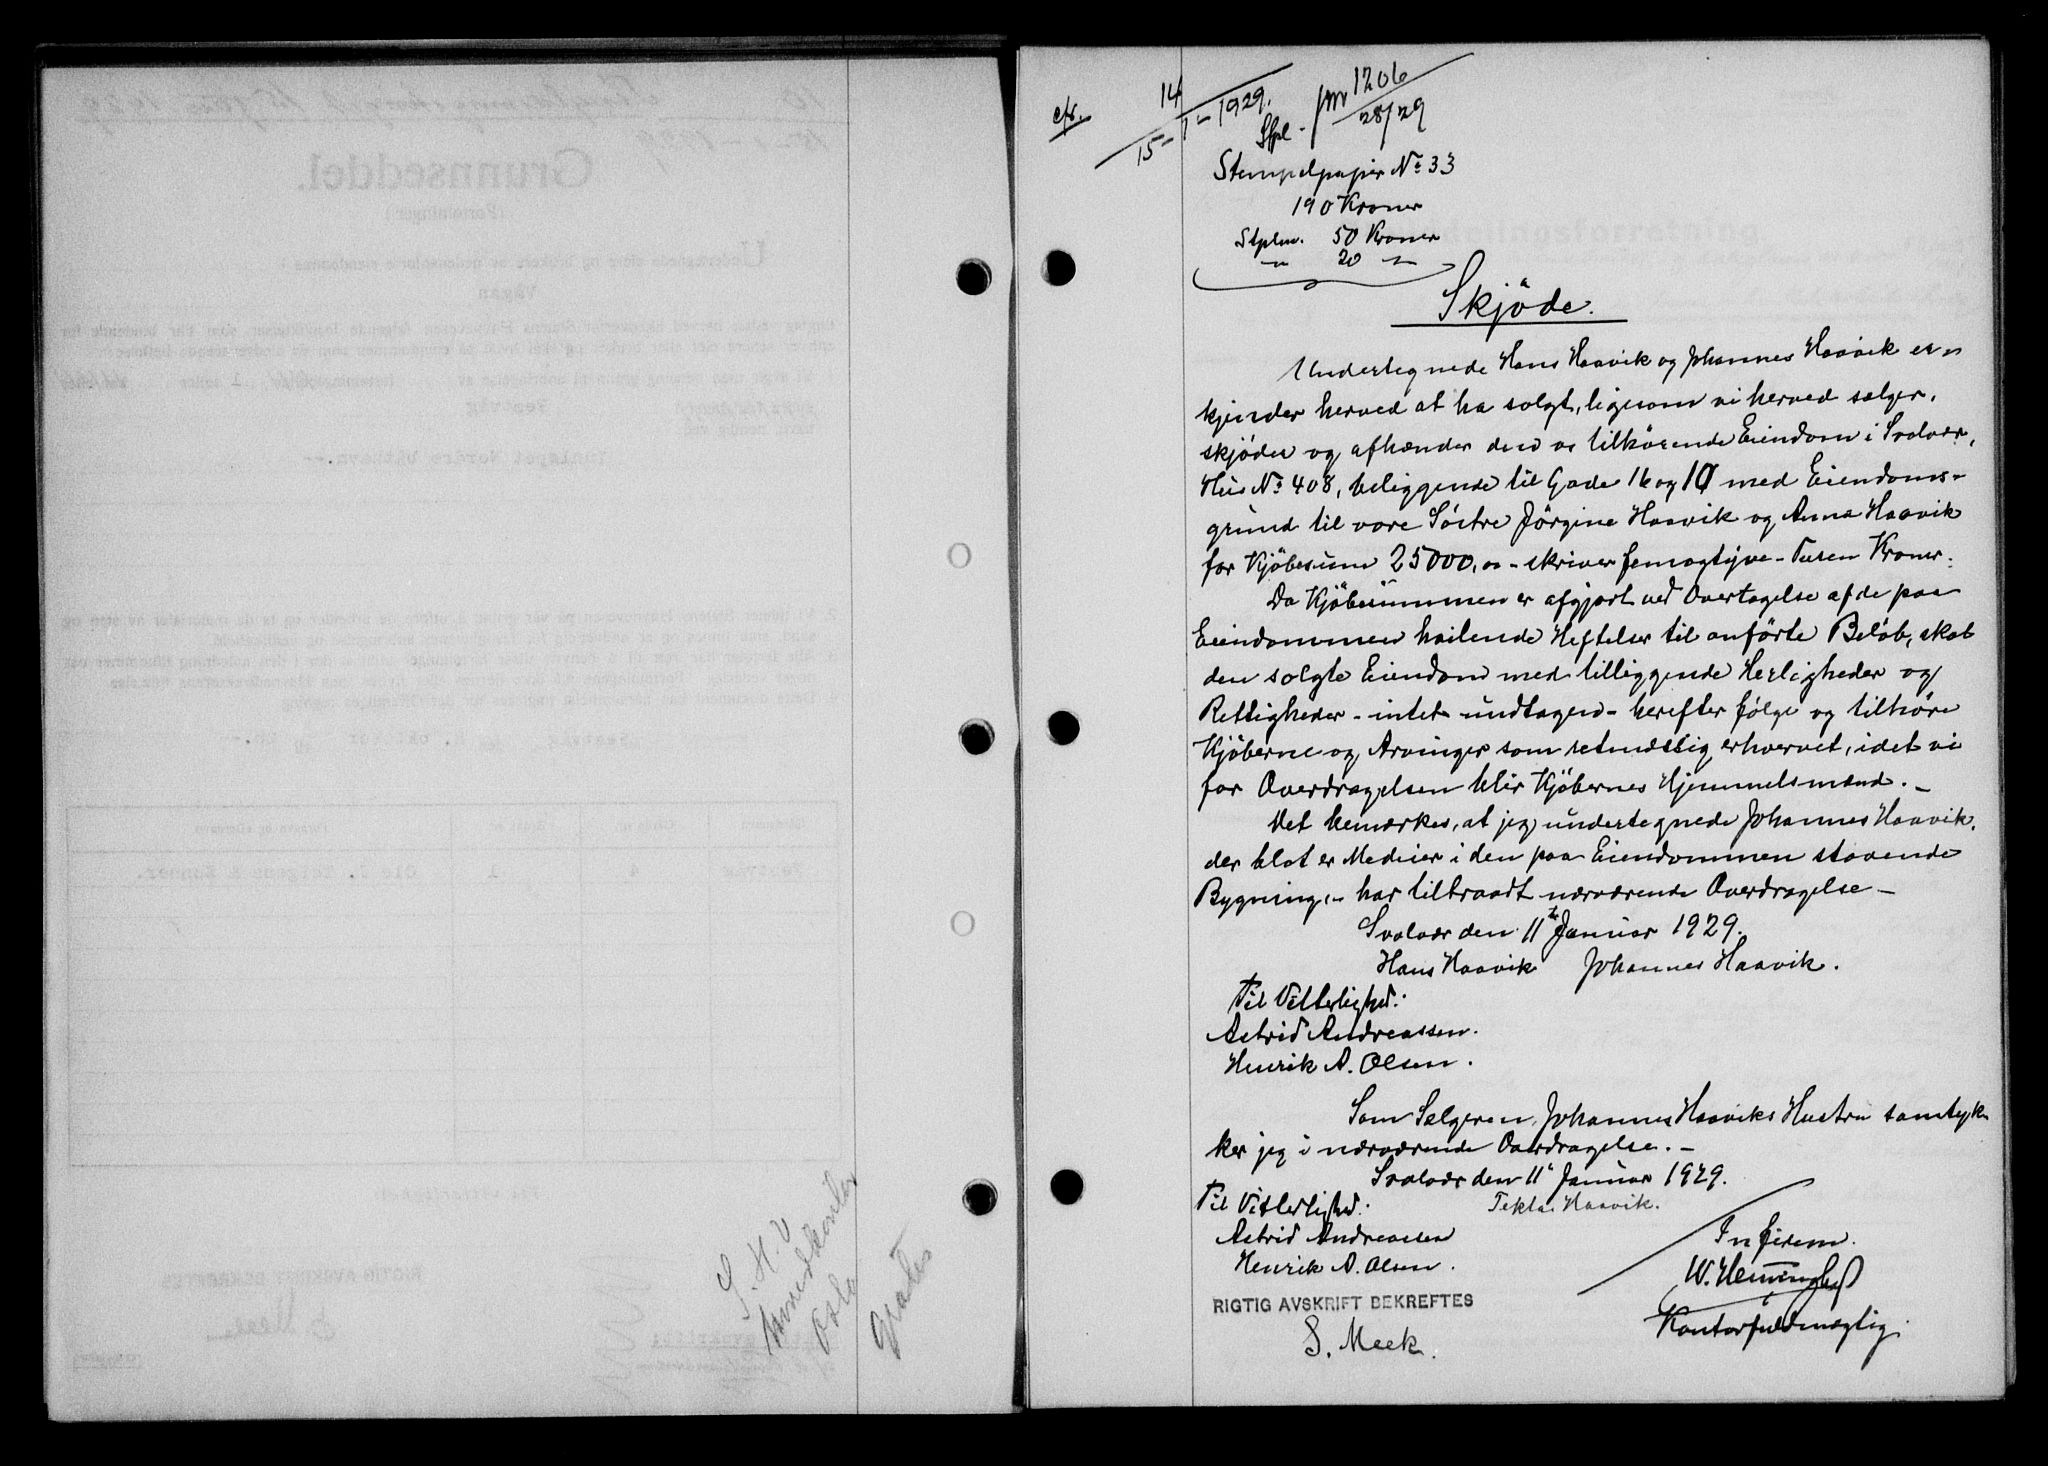 cfr.
14
15-1-1929.
1206
28/29
Stempelpapir No 33
190 Kroner
Stplm. 50 Kroner
" 20 "
Skjöde.
Undertegnede Hans Haavik og Johannes Haavik er=
kjender herved at ha solgt, ligesom vi herved sælger,
skjöder og afhænder den os tilhörende Eiendom i Svolvær,
Hus No 408, beliggende til Gade 16 og 10 med Eiendoms=
grund til vore Söstre Jörgine Haavik og Anna Haavik
for Kjöbesum 25000,00 - skriver femogtyve - Tusen Kroner.
Da Kjöbesummen er afgjort ved Overtagelse af de paa
Eiendommen hvilende Heftelser til anförte Belöb, skal
den solgte Eiendom med tilliggende Herligheder og
Rettigheder - intet undtagen - herefter fölge og tilhöre
Kjöberne og Arvinger som retmæssig erhvervet, idet vi
for Overdragelsen blir Kjöbernes Hjemmelsmænd. -
Det bemærkes, at jeg undertegnede Johannes Haavik,
der blot er Medeier i den paa Eiendommen staaende
Bygning, - har tiltraadt nærværende Overdragelse -
Svolvær den 11te Januar 1929.
Hans Haavik Johannes Haavik.
Til Vitterlighed:
Astrid Andreassen.
Henrik A. Olsen.
Som Sælgeren Johannes Haaviks Hustru samtyk=
ker jeg i nærværende Overdragelse. -
Svolvær den 11' Januar 1929.
Til Vitterlighed: Tekla Haavik.
Astrid Andreassen
Henrik A. Olsen.
In fidem.
Kontorfuldmægtig
RIGTIG AVSKRIFT BEKREFTES
S. Meek.
S. H. V
Oslo
gratis